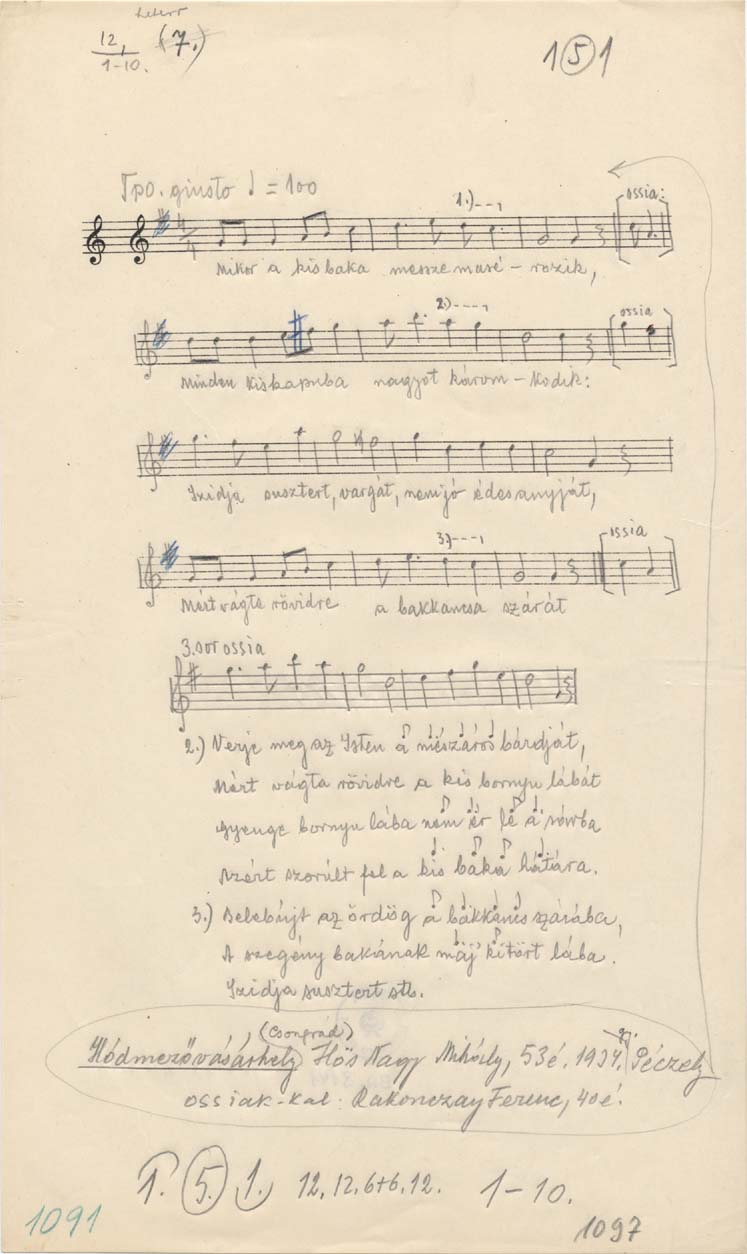 12, (7.)
1-10.
1 5 1
Tpo. giusto ♩ = 100
1.)
ossia:
4/4
Mikor a kis baka messze masé - rozik,
2.)
ossia
Minden kiskapuba nagyot károm - kodik:
Szidja susztert, vargát, nem jó édesanyját,
3.)
ossia
Mért vágta rövidre a bakkancsa szárát
3. sor ossia
2.) Verje meg az Isten a mészáros bárdját,
Mért vágta rövidre a kis bornyu lábát
Gyenge bornyu lába nem ér le a
Azért szorúlt fel a kis baka hátára.
3.) Belebújt az ördög a bakkancs szárába,
A szegény bakának máj kitört lába.
Szidja susztert stb.
(Csongrád)
Hódmezővásárhely Hős Nagy Mihály, 53é. 1937. Péczely
ossiak-kal: Rakonczay Ferenc, 40é.
1. 5. 1. 12, 12, 6+6, 12. 1-10.
1091
1097